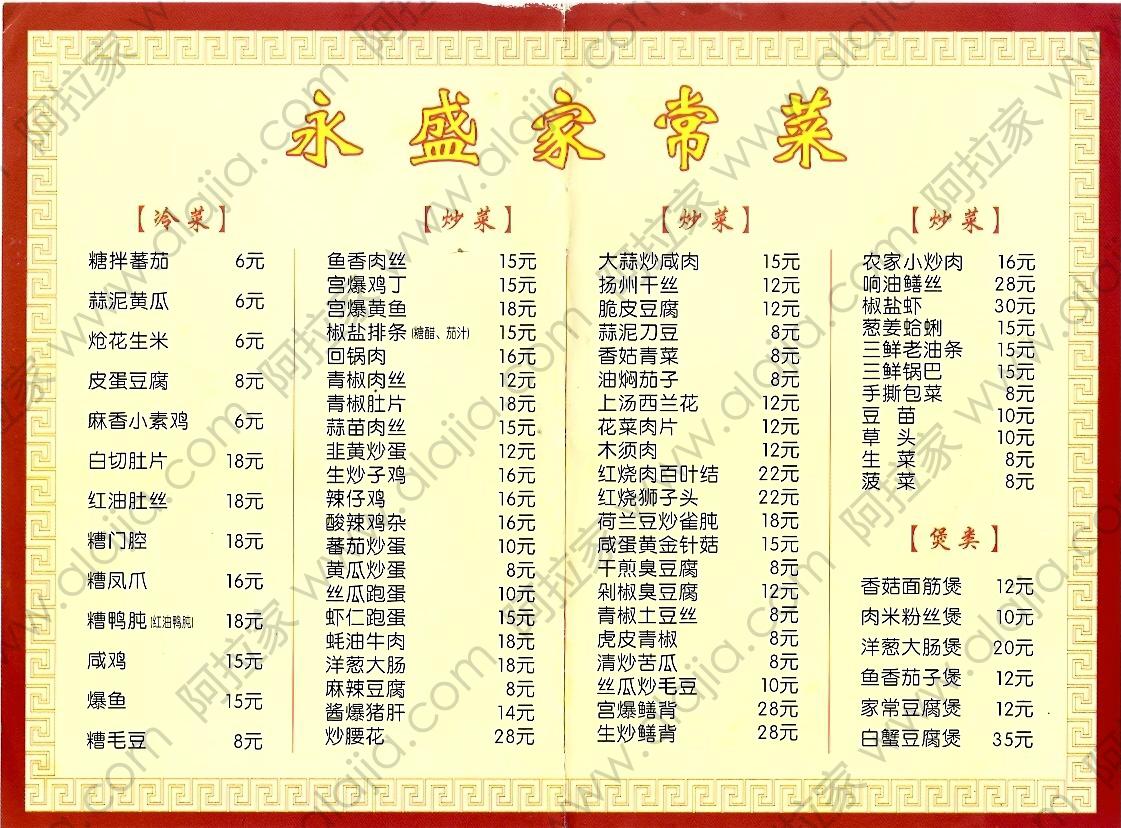 永盛家常菜
【冷菜】
糖拌蕃茄 6元
蒜泥黄瓜 6元
炝花生米 6元
皮蛋豆腐 8元
麻香小素鸡 6元
白切肚片 18元
红油肚丝 18元
糟门腔 18元
糟凤爪 16元
糟鸭肫(红油鸭肫) 18元
咸鸡 15元
爆鱼 15元
糟毛豆 8元
【炒菜】
鱼香肉丝 15元
宫爆鸡丁 15元
宫爆黄鱼 18元
椒盐排条(糖醋、茄汁) 15元
回锅肉 16元
青椒肉丝 12元
青椒肚片 18元
蒜苗肉丝 15元
韭黄炒蛋 12元
生炒子鸡 16元
辣仔鸡 16元
酸辣鸡杂 16元
蕃茄炒蛋 10元
黄瓜炒蛋 8元
丝瓜跑蛋 10元
虾仁跑蛋 15元
蚝油牛肉 18元
洋葱大肠 18元
麻辣豆腐 8元
酱爆猪肝 14元
炒腰花 28元
【炒菜】
大蒜炒咸肉 15元
扬州干丝 12元
脆皮豆腐 12元
蒜泥刀豆 8元
香菇青菜 8元
油焖茄子 8元
上汤西兰花 12元
花菜肉片 12元
木须肉 12元
红烧肉百叶结 22元
红烧狮子头 22元
荷兰豆炒雀肫 18元
咸蛋黄金针菇 15元
干煎臭豆腐 8元
剁椒臭豆腐 12元
青椒土豆丝 8元
虎皮青椒 8元
清炒苦瓜 8元
丝瓜炒毛豆 10元
宫爆鳝背 28元
生炒鳝背 28元
【炒菜】
农家小炒肉 16元
响油鳝丝 28元
椒盐虾 30元
葱姜蛤蜊 15元
三鲜老油条 15元
三鲜锅巴 15元
手撕包菜 8元
豆 苗 10元
草 头 10元
生 菜 8元
菠 菜 8元
【煲类】
香菇面筋煲 12元
肉米粉丝煲 10元
洋葱大肠煲 20元
鱼香茄子煲 12元
家常豆腐煲 12元
白蟹豆腐煲 35元
阿拉家 www.alajia.com